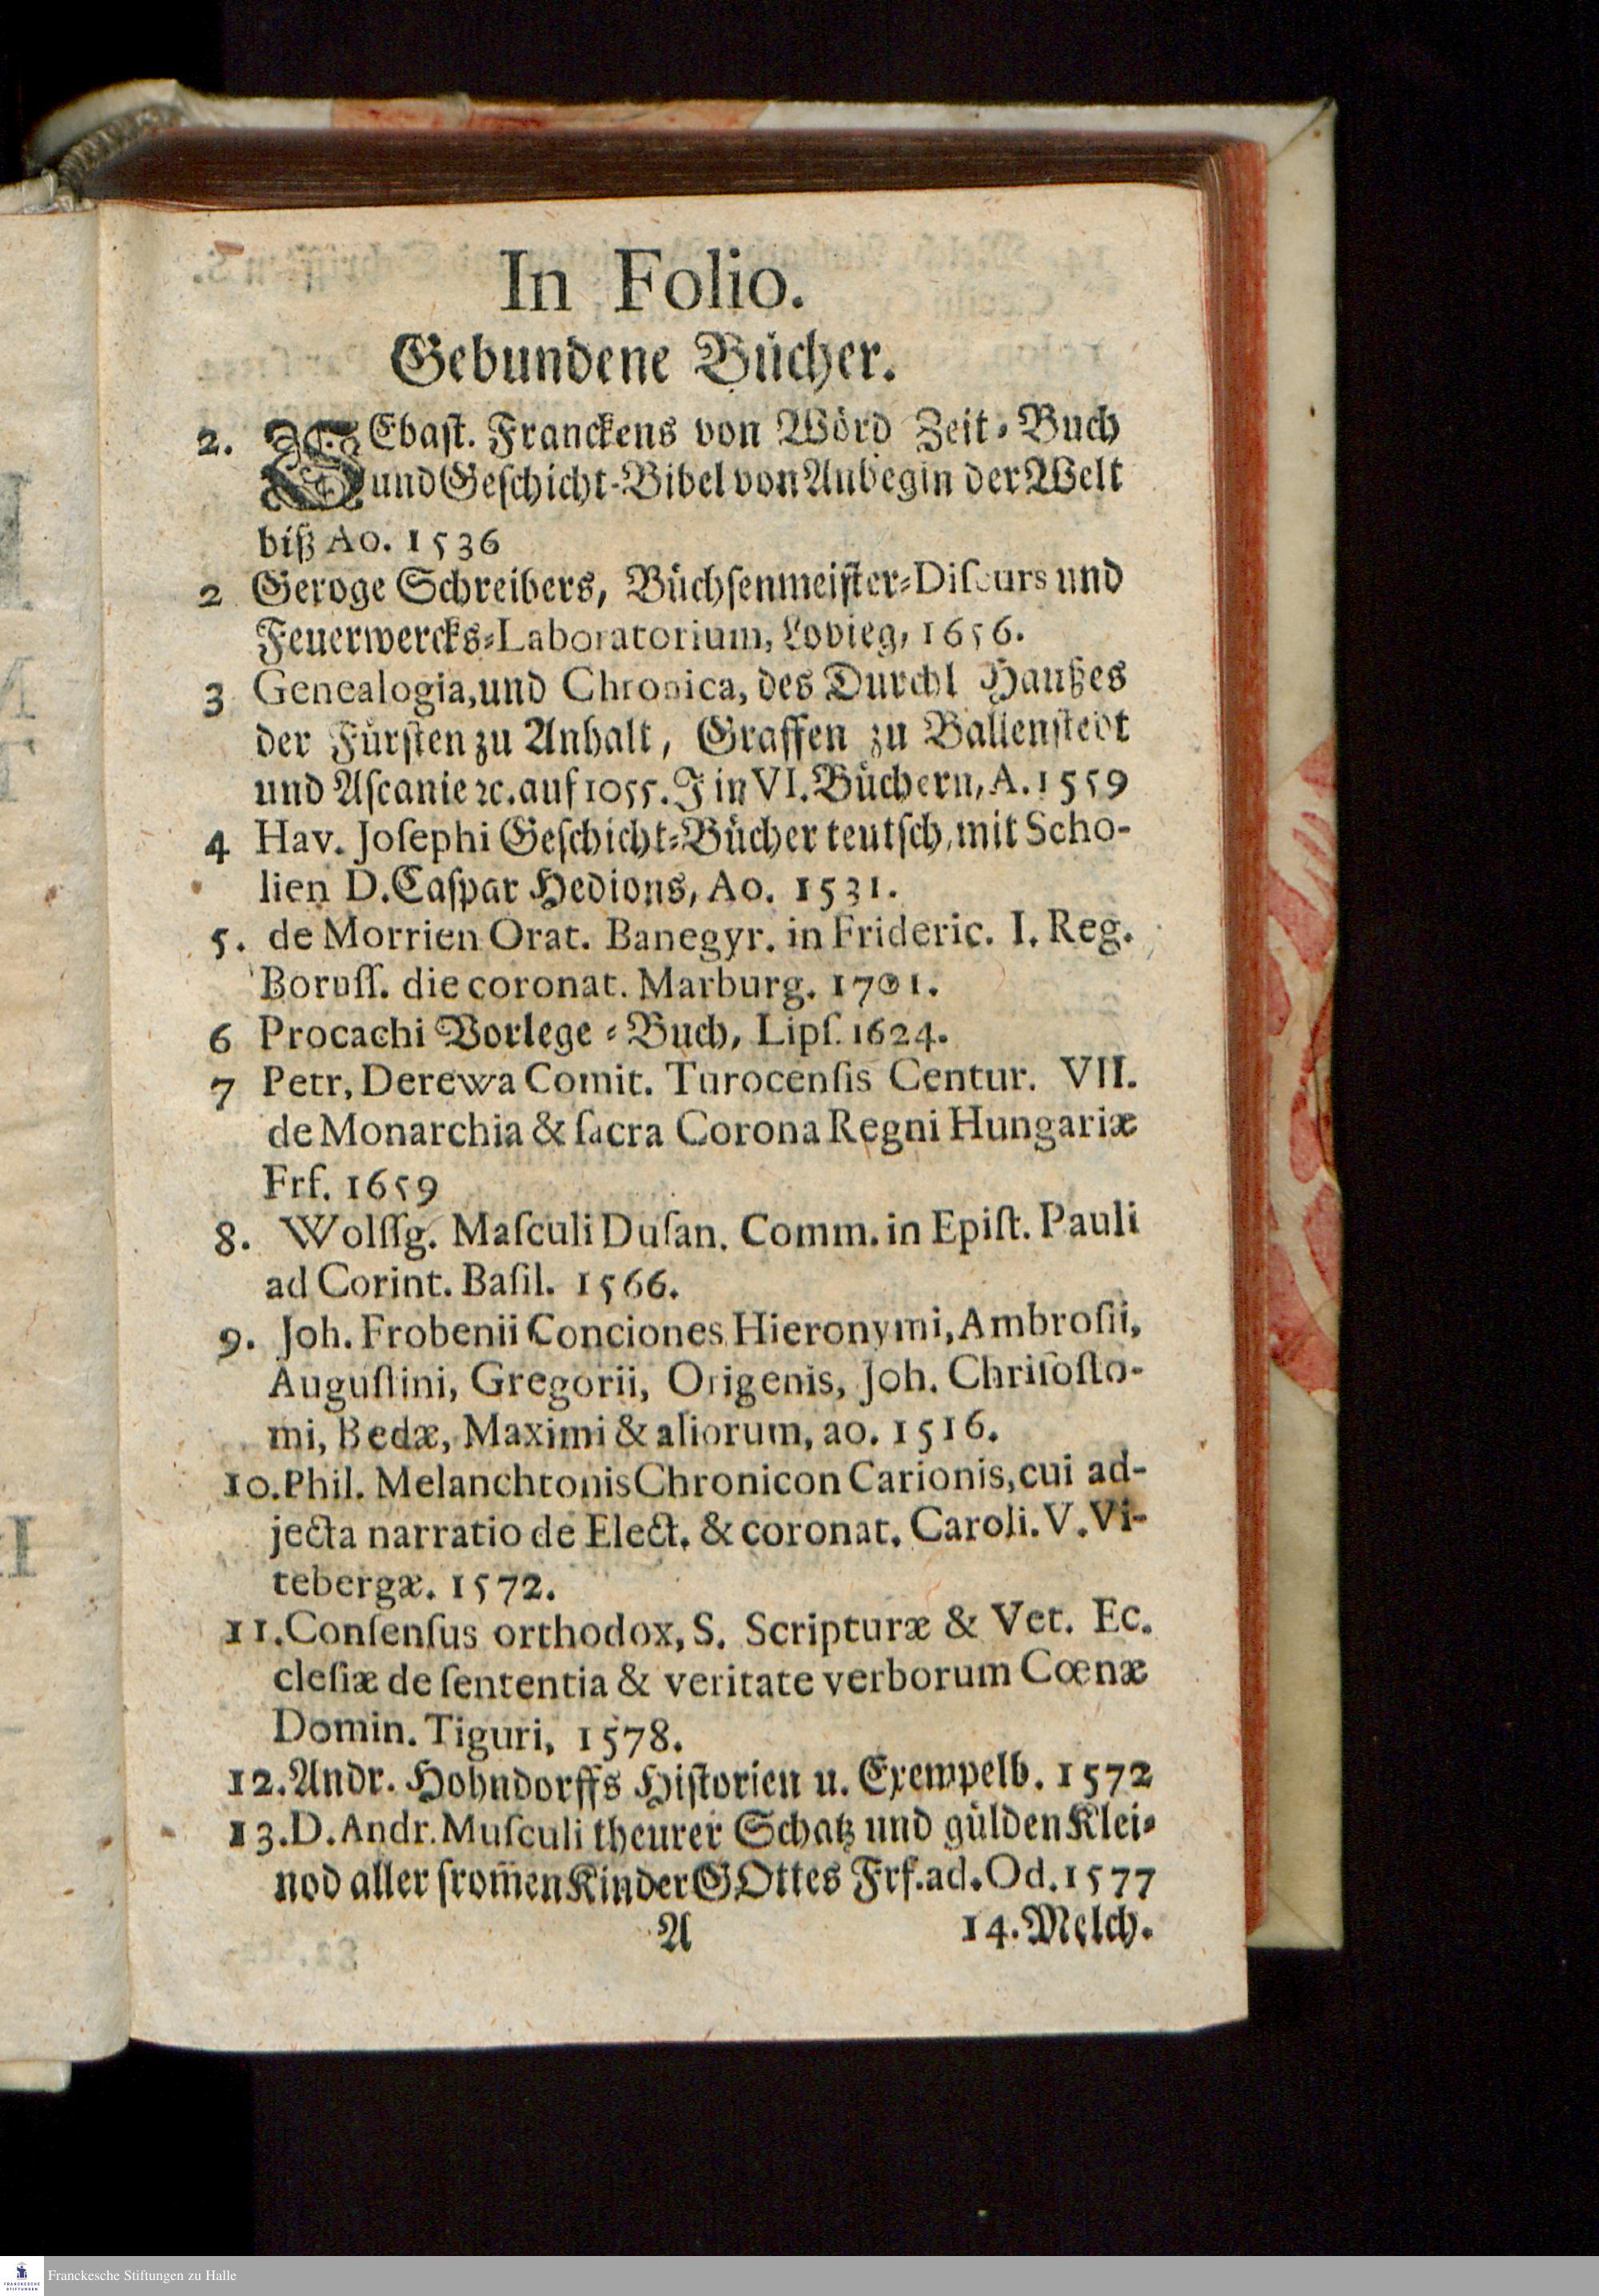 In Folio.
Gebundene Bücher.
2. SEbaſt. Franckens von Wörd Zeit-Buch
und Geſchicht-Bibel von Anbegin der Welt
biß Ao. 1536
2 Geroge Schreibers, Büchſenmeiſter-Diſcurs und
Feuerwercks-Laboratorium, 1656.
3 Genealogia, und Chronica, des Durchl Haußes
der Fürſten zu Anhalt, Graffen zu Ballenſtedt
und Aſcanie ꝛc. auf 1055. J in VI. Büchern, A. 1559
4 Hav. Joſephi Geſchicht-Bücher teutſch, mit Scho-
lien D. Caſpar Hedions, Ao. 1531.
5. de Morrien Orat. Banegyr. in Frideric. I. Reg.
Boruſſ. die coronat. Marburg. 1701.
6 Procachi Vorlege-Buch, Lipſ. 1624.
7 Petr, Derewa Comit. Turocenſis Centur. VII.
de Monarchia & ſacra Corona Regni Hungariæ
Frf. 1659
8. Wolffg. Maſculi Duſan. Comm. in Epiſt. Pauli
ad Corint. Baſil. 1566.
9. Joh. Frobenii Conciones Hieronymi, Ambroſii,
Auguſtini, Gregorii, Origenis, Joh. Chriſoſto-
mi, Bedæ, Maximi & aliorum, ao. 1516.
10. Phil. Melanchtonis Chronicon Carionis, cui ad-
jecta narratio de Elect. & coronat. Caroli. V. Vi-
tebergæ. 1572.
11. Conſenſus orthodox, S. Scripturæ & Vet. Ec.
cleſiæ de ſententia & veritate verborum Cœnæ
Domin. Tiguri, 1578.
12. Andr. Hohndorffs Hiſtorien u. Exempelb. 1572
13. D. Andr. Muſculi theurer Schatz und gülden Klei-
nod aller from̃en Kinder GOttes Frf. ad. Od. 1577
A 14. Melch.
Franckesche Stiftungen zu Halle
FRANCKESCHE
STIFTUNGEN